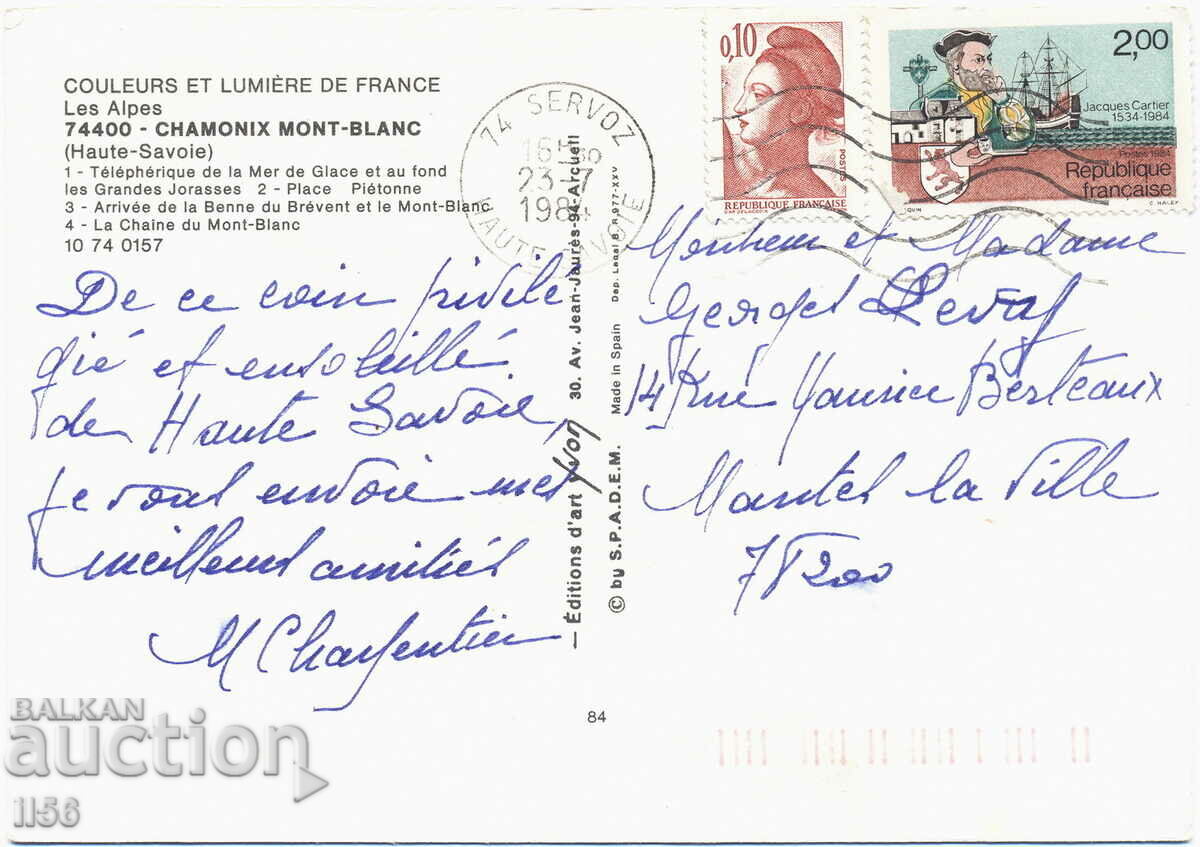 COULEURS ET LUMIÈRE DE FRANCE
Les Alpes
74400 - CHAMONIX MONT-BLANC
(Haute-Savoie)
1 - Téléphérique de la Mer de Glace et au fond
les Grandes Jorasses 2 - Place Piétonne
3 - Arrivée de la Benne du Brévent et le Mont-Blanc
4 - La Chaine du Mont-Blanc
10 74 0157
De ce coin privilé
gié et ensoleillé
de Haute Savoie,
je vous envoie mes
meilleurs amitiés
M Charpentier
74 SERVOZ
16H30
23-7
1984
HAUTE SAVOIE
— Éditions d'art yvon 30. Av. Jean-Jaurès-94-Arcueil
© by S.P.A.D.E.M. Made in Spain Dep. Legal B. 977-XXV
84
0,10
POSTES
RÉPUBLIQUE FRANÇAISE
2,00
Jacques Cartier
1534-1984
Postes 1984
République
française
C. HALEY
Monsieur et Madame
Georges
14 Rue Maurice Berteaux
Mantes la Ville
78200
BALKAN
auction
1156